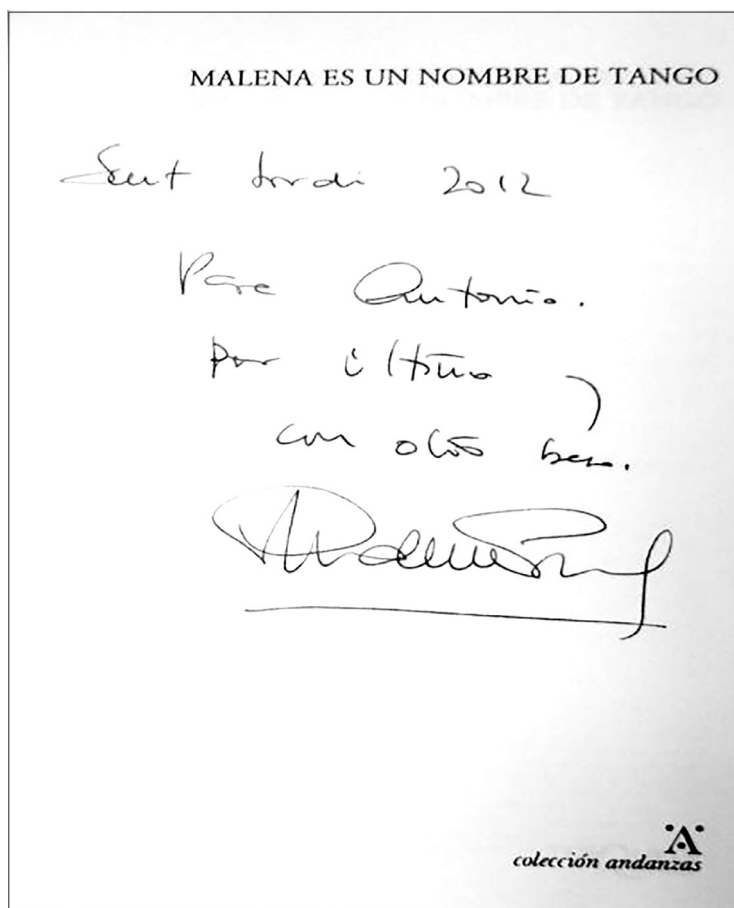 MALENA ES UN NOMBRE DE TANGO
Sant Jordi 2012
Para Antonio.
por último y
con otro beso.
colección andanzas